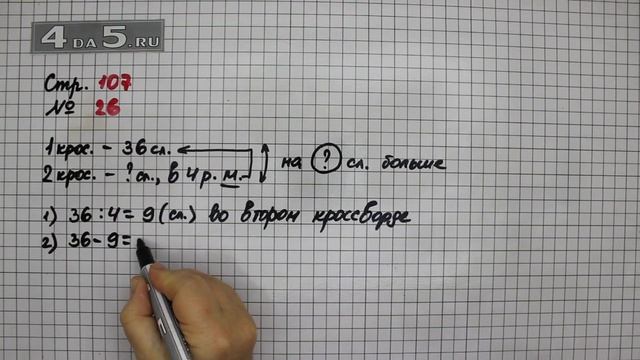 4 DA 5.RU
Стр. 107
№ 26
1 крос. - 36 сл.
2 крос. - ? сл., в 4 р. м.
на ? сл. больше
1) 36 : 4 = 9 (сл.) во втором кроссворде
2) 36 - 9 =